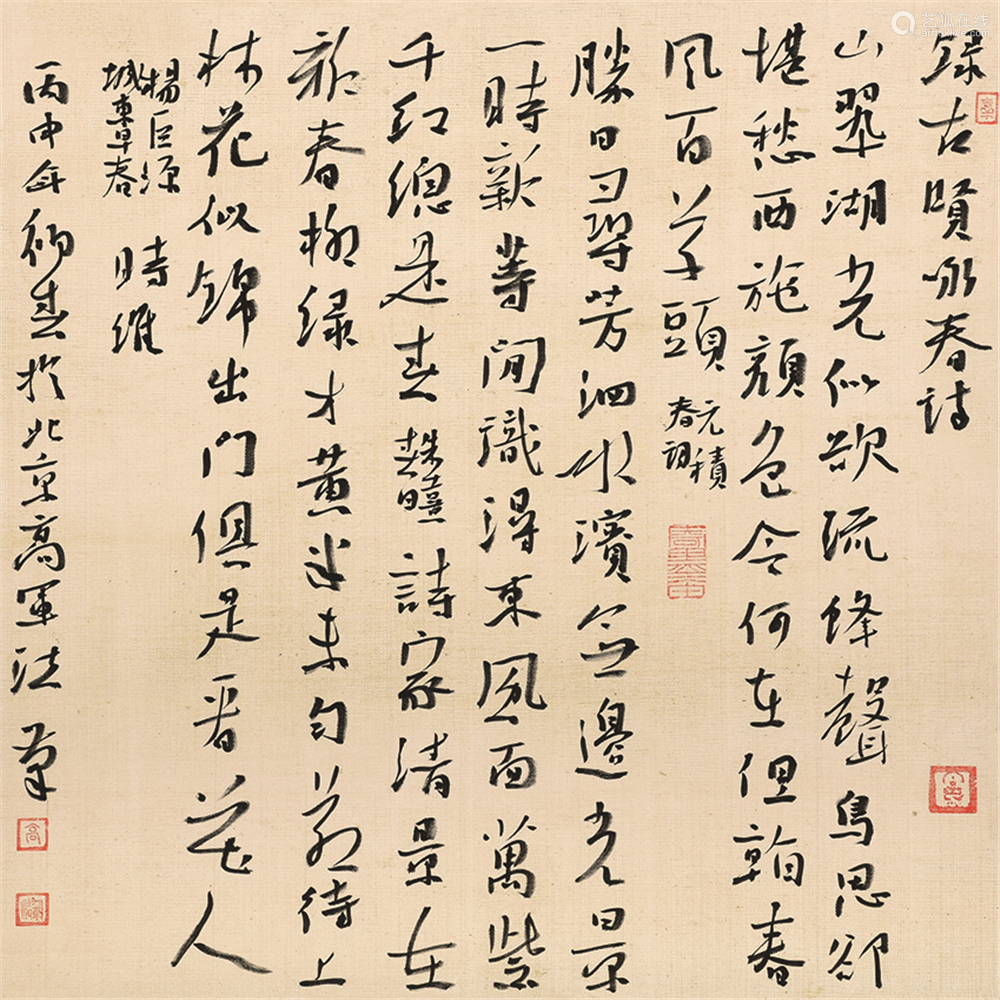 錄古賢咏春詩
山翠湖光似欲流蜂聲鳥思卻
堪愁西施顏色今何在但看春
風百草頭 元稹 春詞
勝日尋芳泗水濱無邊光景
一時新等閒識得東風面萬紫
千紅總是春 朱熹 春日 詩家清景在
新春柳綠才黃半未勻若待上
林花似錦出門俱是看花人
楊巨源 城東早春 時維
丙申年初春於北京高軍法筆
艺狐在线